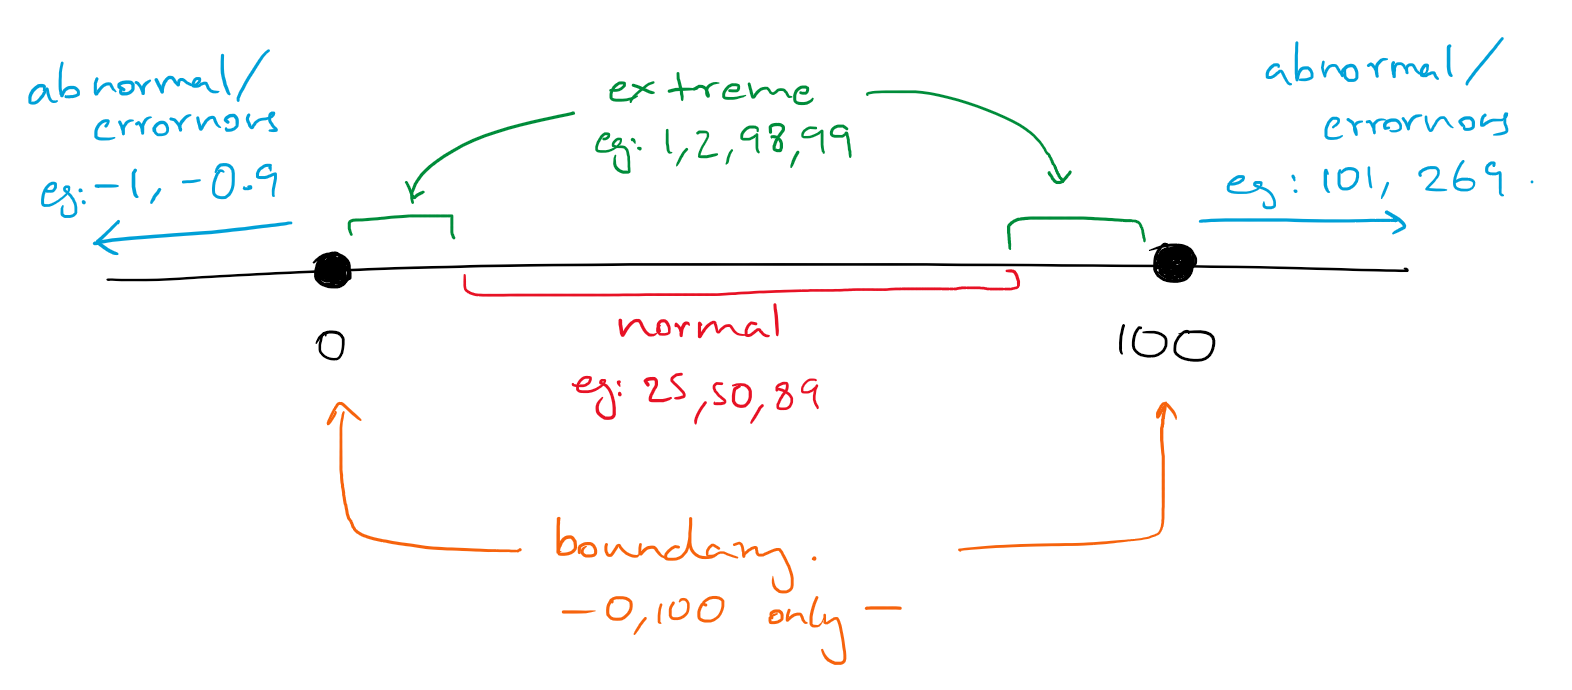 abnormal/
errornous
eg: -1, -0.9
extreme
eg: 1,2,98,99
abnormal/
errornous
eg: 101, 269.
0
normal
eg: 25,50,89
100
boundary.
- 0,100 only -